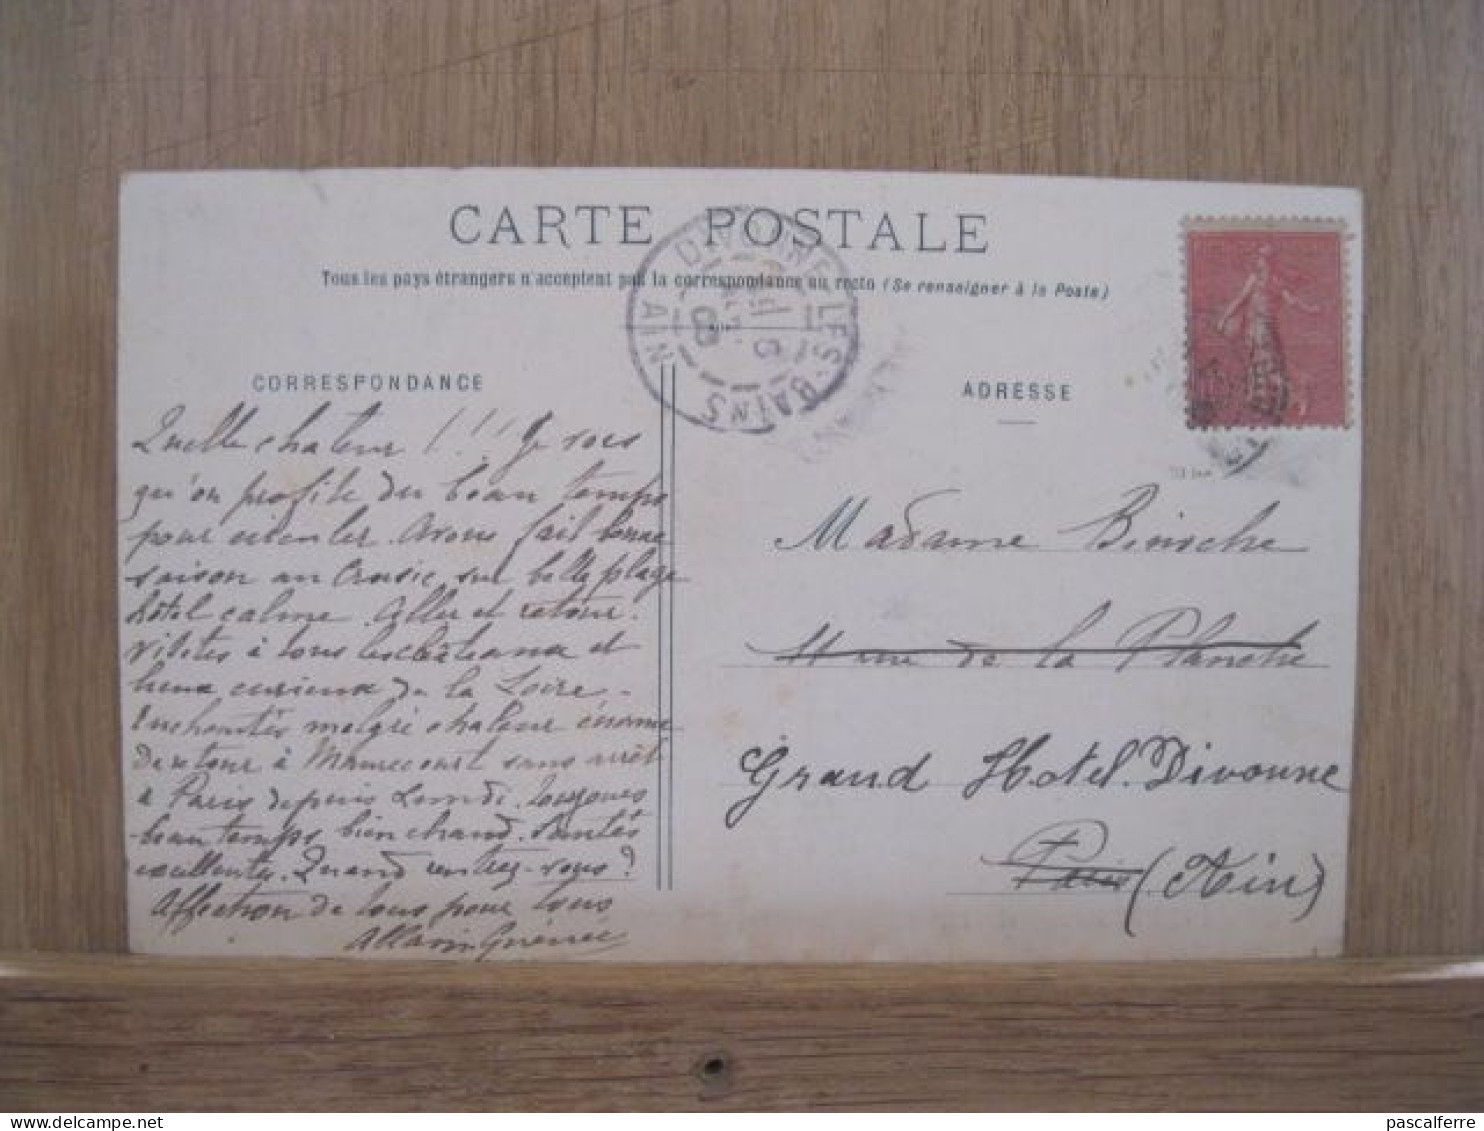 CARTE POSTALE
Tous les pays étrangers n'acceptent pas la correspondance au recto (Se renseigner à la Poste)
DIVONNE LES BAINS
AIN
CORRESPONDANCE
ADRESSE
Quelle chaleur !!! Je vois
qu'on profite du beau temps
pour circuler. Avons fait bonne
saison au Croisic, sur belle plage
hôtel calme. Aller et retour.
Visites à tous les châteaux et
lieux curieux de la Loire.
Enchantés malgré chaleur énorme
De retour à Maurecourt sans arrêt
à Paris depuis Lundi. Toujours
beau temps bien chaud. Santés
excellentes. Quand rentrez-vous?
Affection de tous pour tous
Madame Binoche
11 rue de la Planche
Grand Hotel. Divonne
Paris (Ain)
pascalferre